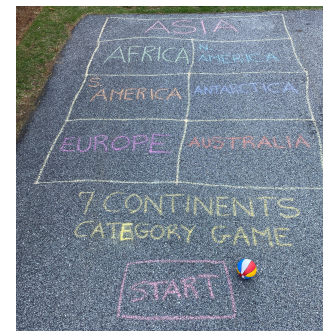 ASIA
AFRICA
N
AMERICA
S
AMERICA
ANTARCTICA
EUROPE
AUSTRALIA
7 CONTINENTS
CATEGORY GAME
START